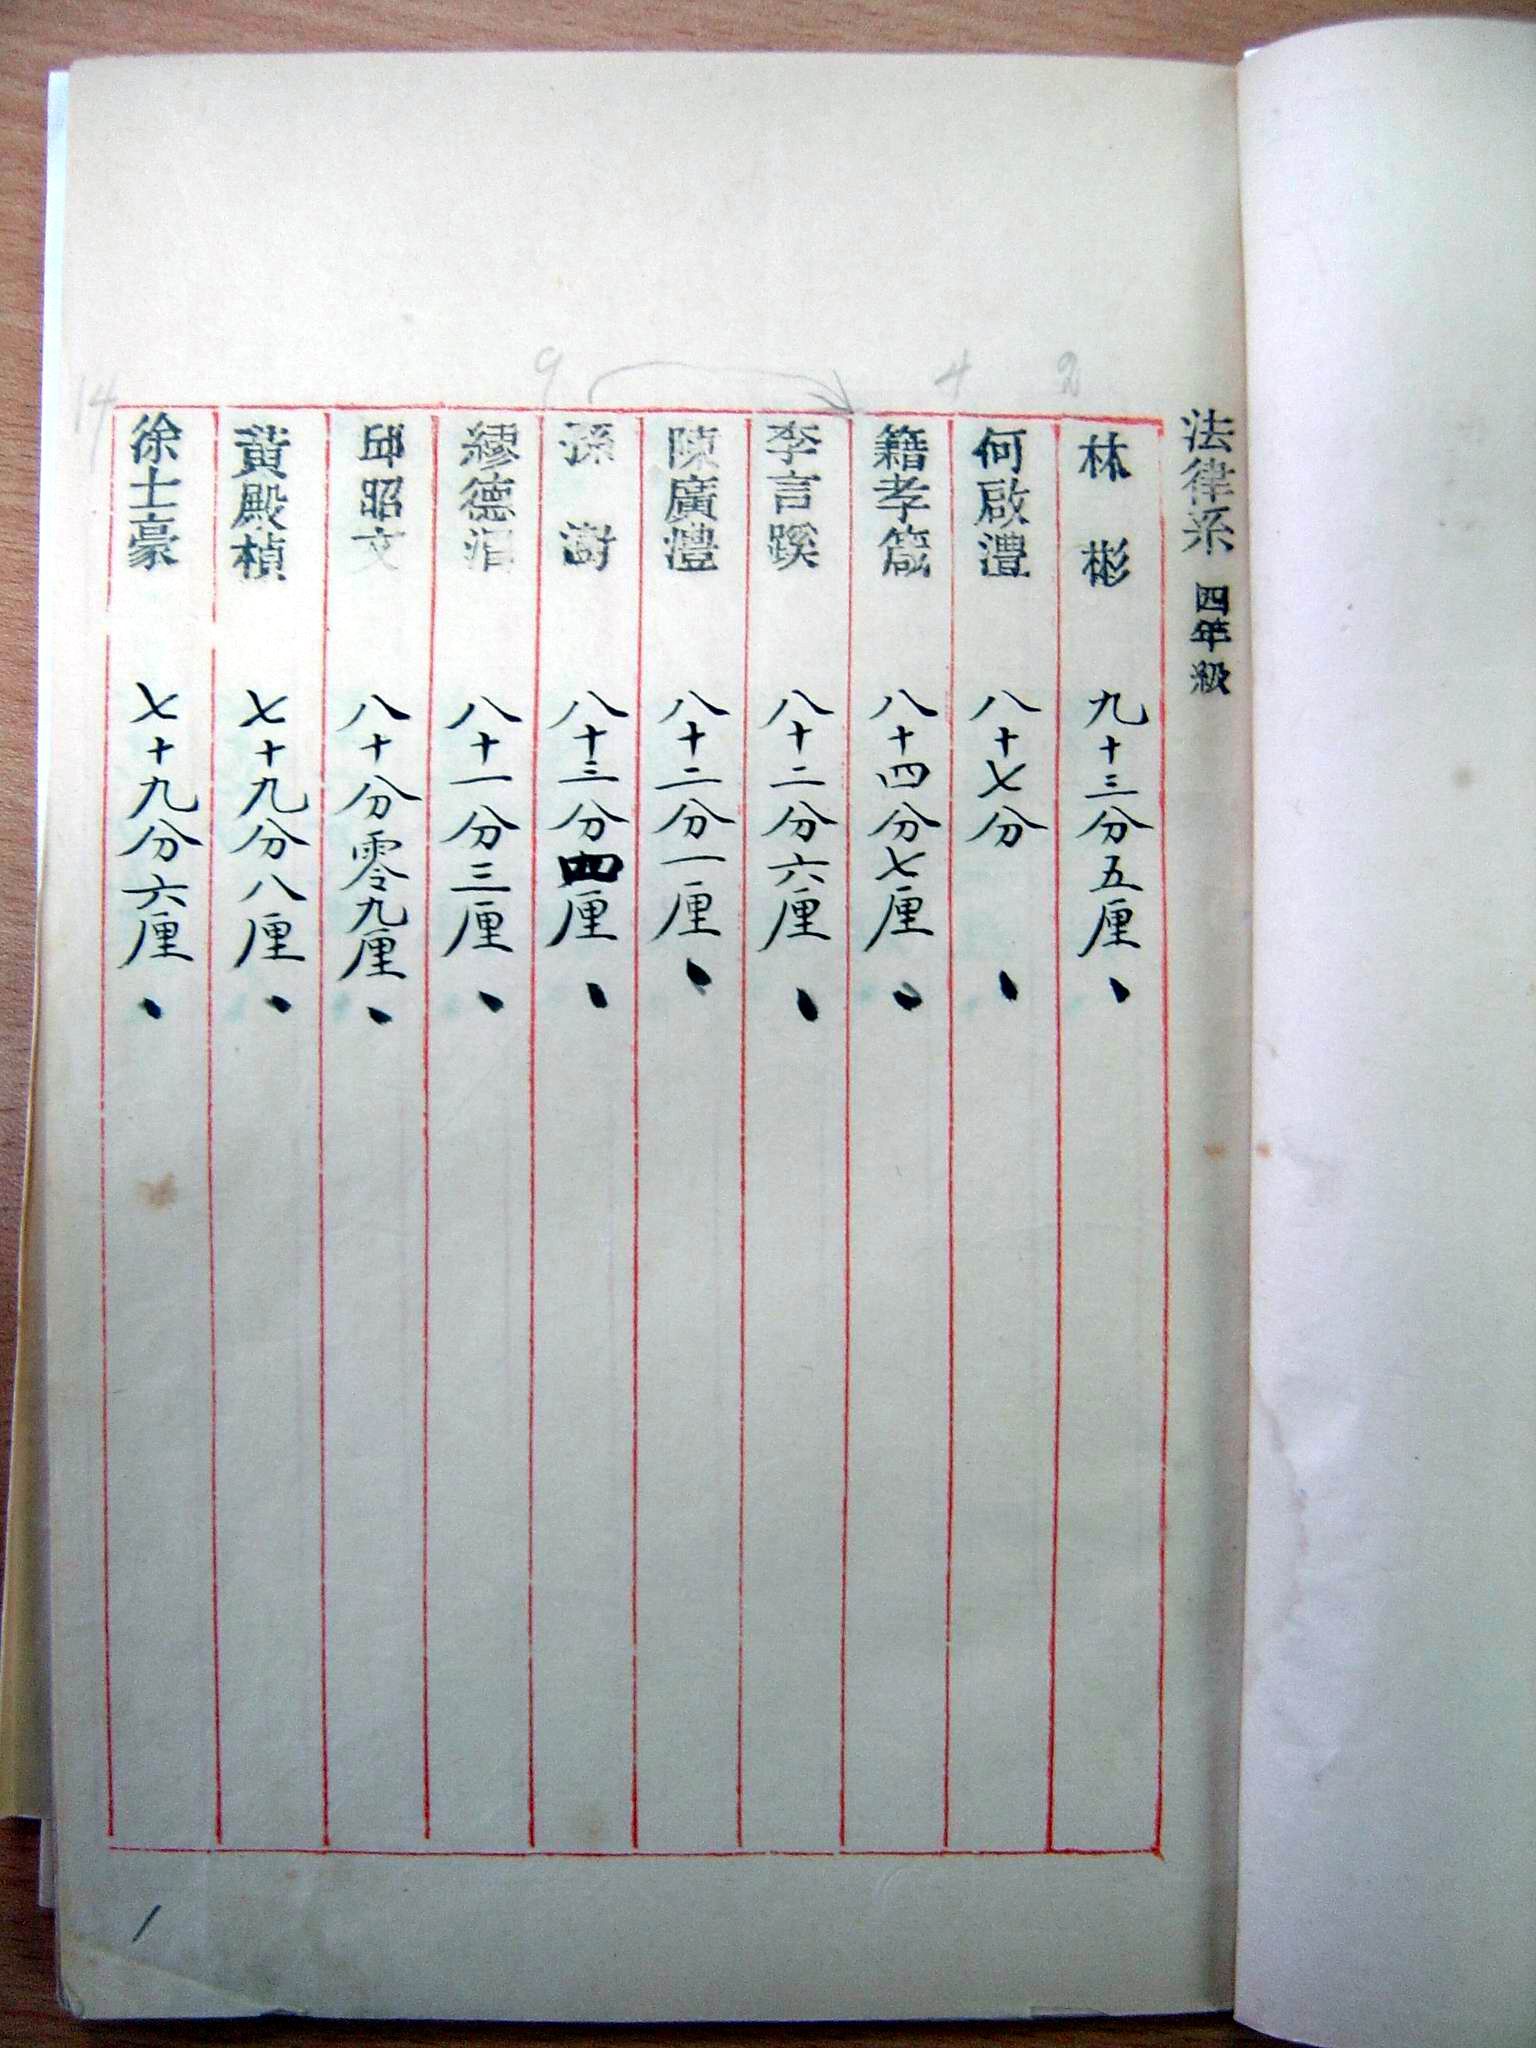 法律系 四年級
林彬 九十三分五厘、
何啟澧 八十七分、
籍孝箴 八十四分七厘、
李言蹊 八十二分六厘、
陳廣澧 八十二分一厘、
孫澍 八十三分四厘、
繆德涓 八十一分三厘、
邱昭文 八十分零九厘、
黃殿楨 七十九分八厘、
徐士豪 七十九分六厘、
2
4
9
14
1